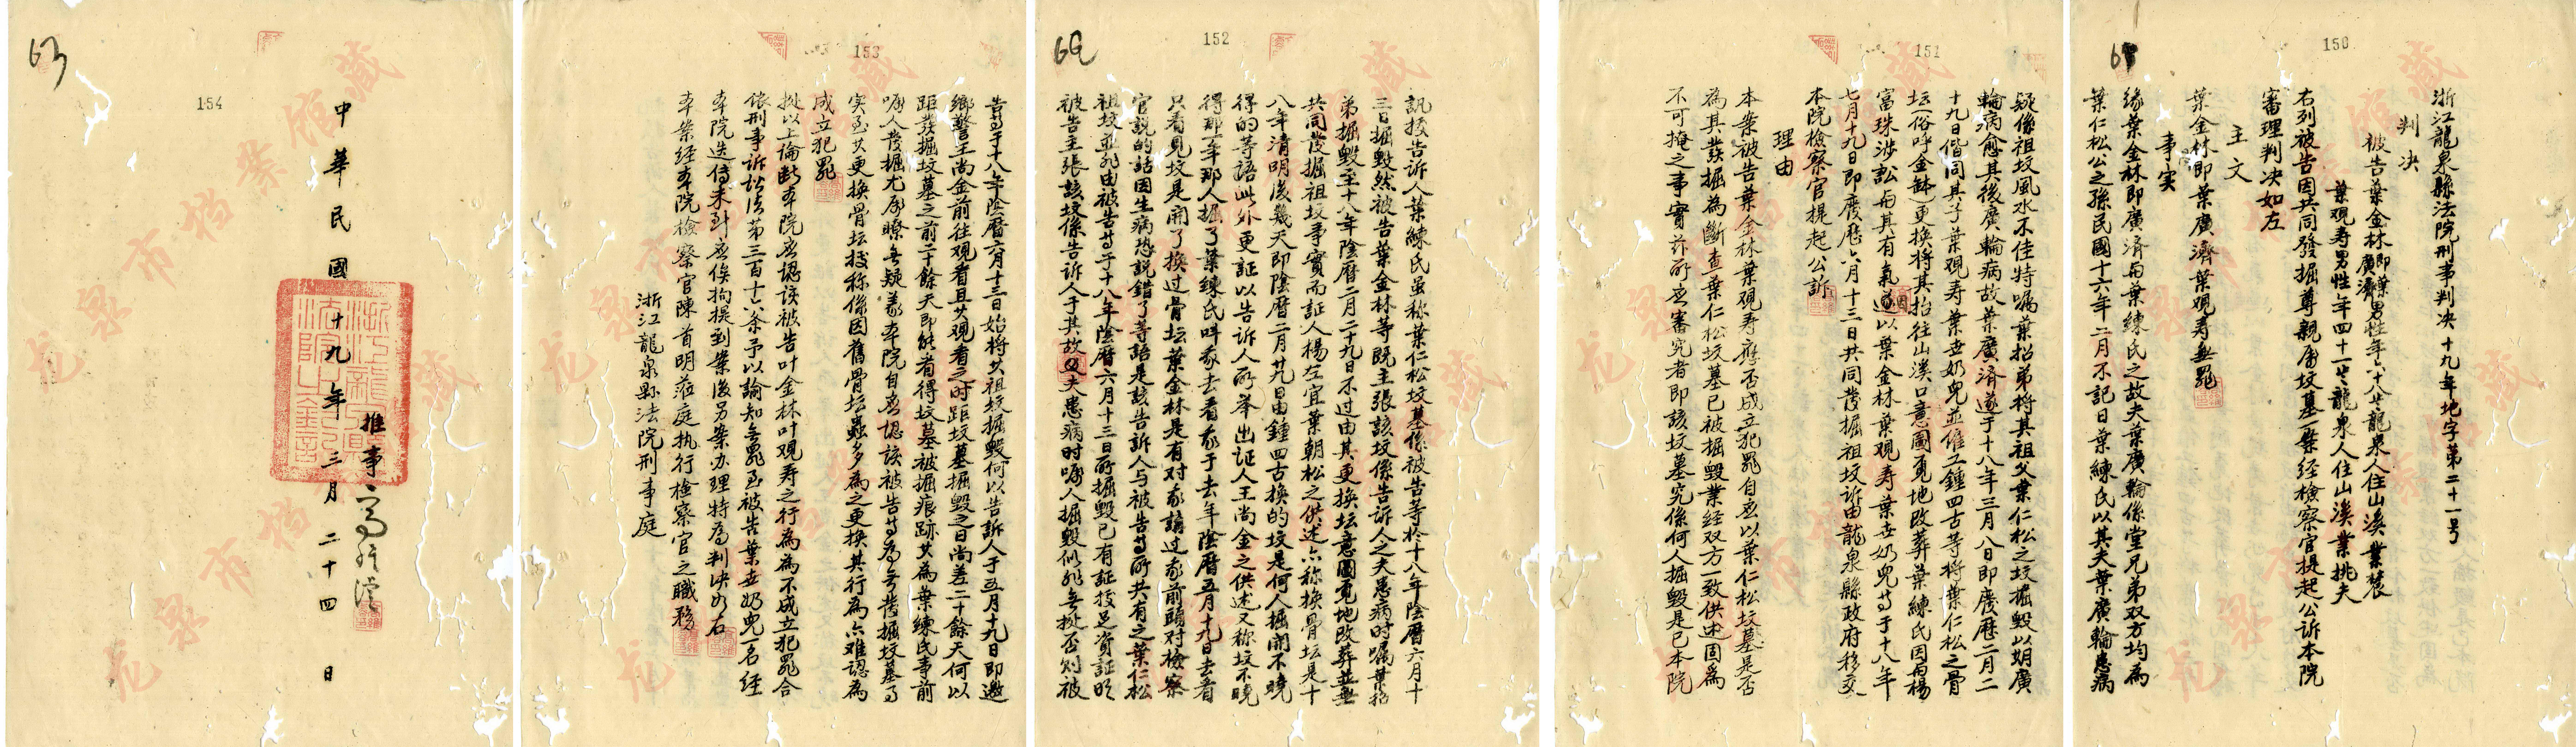 150
浙江龍泉縣法院刑事判决十九年地字第二十一号
判决
被告葉金林即葉廣濟男性年六十八岁龍泉人住山溪業農
葉观寿男性年四十一岁龍泉人住山溪業挑夫
右列被告因共同發掘尊親屬坟墓一案经檢察官提起公訴本院
審理判决如左
主文
葉金林即葉廣濟葉观寿無罪
事实
缘葉金林即廣济与葉練氏之故夫葉廣輪係堂兄弟双方均為
葉仁松公之孫民國十六年二月不記日葉練氏以其夫葉廣輪患病
151
疑係祖坟風水不佳特嘱葉招弟将其祖父葉仁松之坟掘毁以期廣
輪病愈其後廣輪病故葉廣济遂于十八年三月八日即廢歷二月二
十九日偕同其子葉观寿葉世奶兜並僱工鍾四古等将葉仁松之骨
坛(俗呼金缽)更换将其抬往山溪口意圖覓地改葬葉練氏因与楊
富珠涉訟与其有氣遂以葉金林葉观寿葉世奶兜等于十八年
七月十九日即廢歷六月十三日共同發掘祖坟訴由龍泉縣政府移交
本院檢察官提起公訴
理由
本案被告葉金林葉观寿應否成立犯罪自应以葉仁松坟墓是否
為其發掘為斷查葉仁松坟墓已被掘毁業经双方一致供述固為
不可掩之事實許所应審究者即該坟墓究係何人掘毁是已本院
152
訊授告訴人葉練氏虽称葉仁松坟墓係被告等於十八年陰曆六月十
三日掘毁然被告葉金林等既主張該坟係告訴人之夫患病时嘱葉招
弟掘毁至十八年陰曆二月二十九日不过由其更换坛意圖覓地改葬並無
共同發掘祖坟事實而証人楊左宜葉朝松之供述六称换骨坛是十
八年清明後幾天即陰曆二月廿九日由鍾四古换的坟是何人掘開不曉
得的等語此外更証以告訴人所举出証人王尚金之供述又称坟不曉
得那一年那人掘了葉練氏叫我去看我于去年陰曆五月十九日去看
只看見坟是開了换过骨坛葉金林是有对我講过我前頭对檢察
官説的話因生病恐説錯了等語是該告訴人与被告等所共有之葉仁松
祖坟並非由被告等于十八年陰曆六月十三日所掘毁已有証授足資証明
被告主張該坟係告訴人于其故夫患病时嘱人掘毁似非無挺否则被
153
告等于十八年陰曆六月十三日始将其祖坟掘毁何以告訴人于五月十九日即邀
鄉警王尚金前往观看且其观看之时距坟墓掘毁之日尚差二十餘天何以
距發掘坟墓之前二十餘天即能看得坟墓被掘痕跡其為葉練氏事前
嘱人發掘尤屬瞭無疑義本院自应認該被告等為無發掘坟墓之
实至其更换骨坛授称係因舊骨坛蟲多為之更换其行為六难認為
成立犯罪
挺以上論断本院应認該被告叶金林叶观寿之行為為不成立犯罪合
依刑事訴訟法第三百十六条予以諭知無罪至被告葉世奶兜一名经
本院迭传未到应俟拘提到案後另案办理特為判决如右
本案经本院檢察官陳首明蒞庭执行檢察官之職務
浙江龍泉縣法院刑事庭
154
推事
中華民國十九年三月二十四日